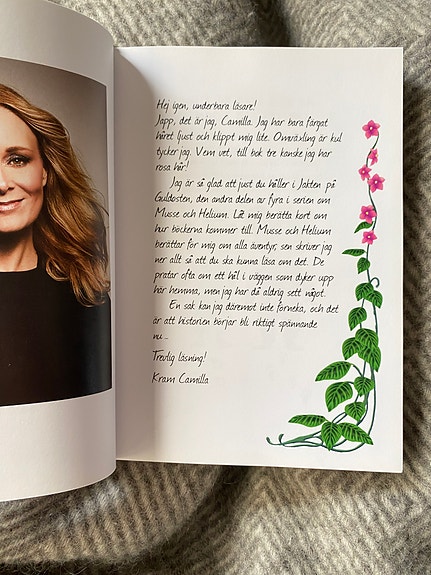 Hej igen, underbara läsare!
Japp, det är jag, Camilla. Jag har bara färgat
håret ljust och klippt mig lite. Omväxling är kul
tycker jag. Vem vet, till bok tre kanske jag har
rosa hår!
Jag är så glad att just du håller i Jakten på
Guldosten, den andra delen av fyra i serien om
Musse och Helium. Låt mig berätta kort om
hur böckerna kommer till. Musse och Helium
berättar för mig om alla äventyr, sen skriver jag
ner allt så att du ska kunna läsa om det. De
pratar ofta om ett hål i väggen som dyker upp
här hemma, men jag har då aldrig sett något.
En sak kan jag däremot inte förneka, och det
är att historien börjar bli riktigt spännande
nu...
Trevlig läsning!
Kram Camilla